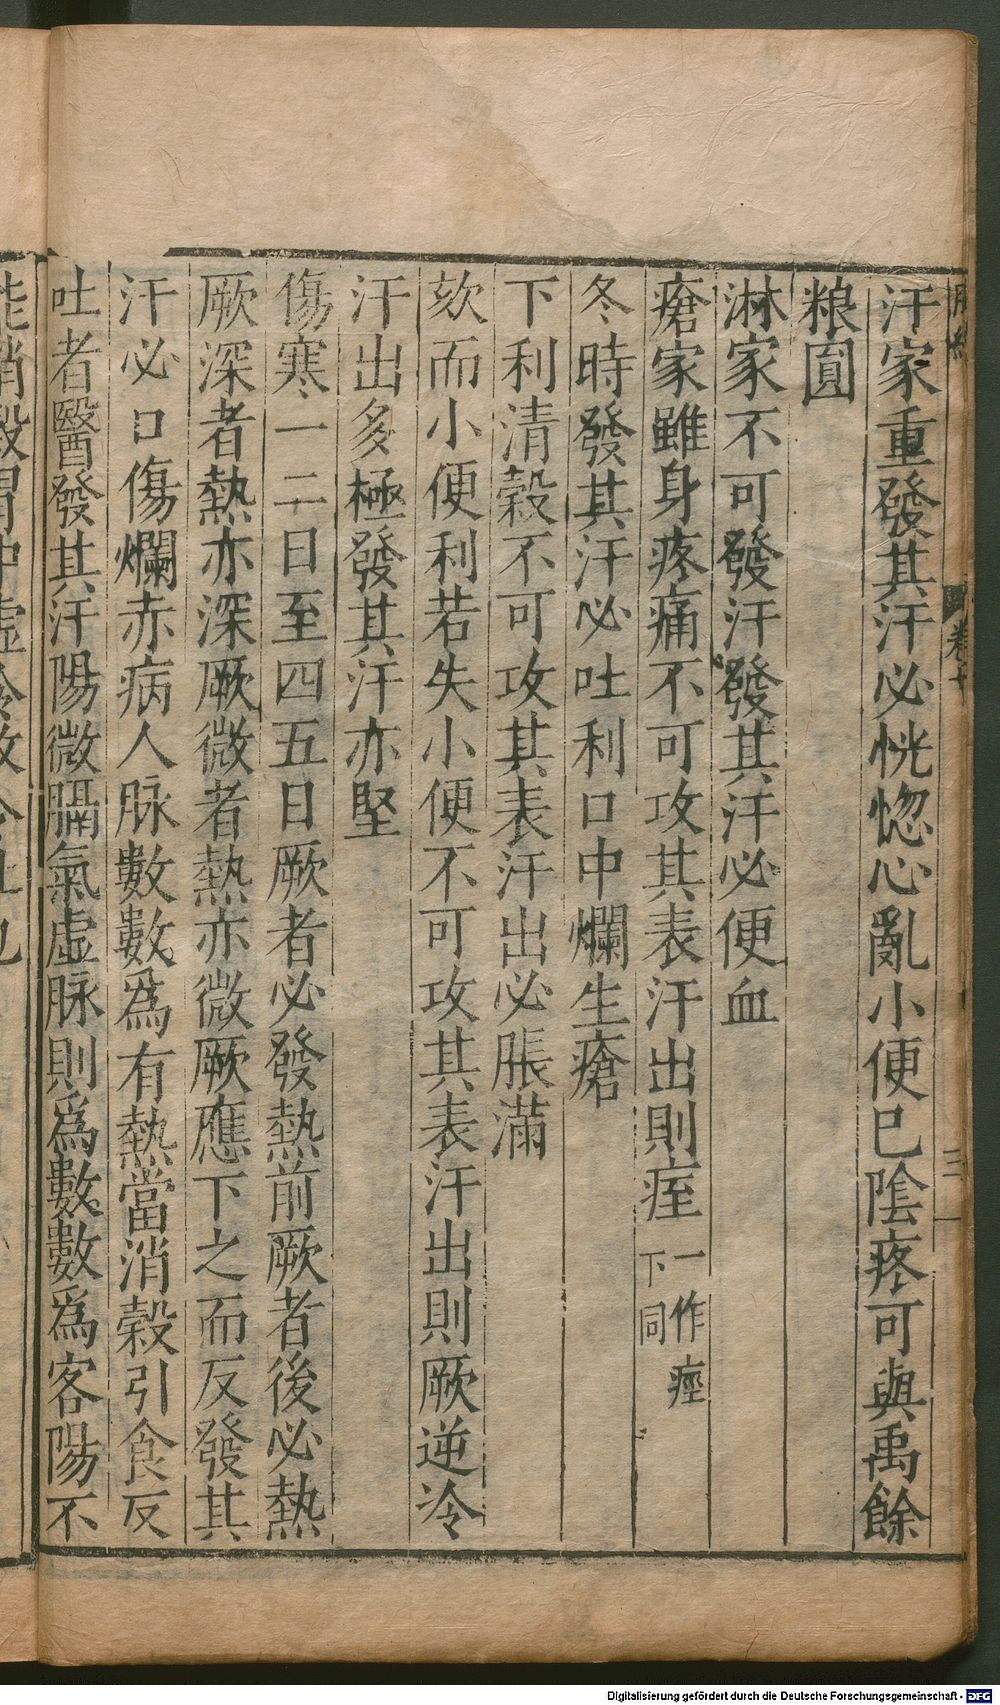 汗家重發其汗必恍惚心亂小便已陰疼可與禹餘
粮圓
淋家不可發汗發其汗必便血
瘡家雖身疼痛不可攻其表汗出則痓一作痙下同
冬時發其汗必吐利口中爛生瘡
下利清穀不可攻其表汗出必脹滿
欬而小便利若失小便不可攻其表汗出則厥逆冷
汗出多極發其汗亦堅
傷寒一二日至四五日厥者必發熱前厥者後必熱
厥深者熱亦深厥微者熱亦微厥應下之而反發其
汗必口傷爛赤病人脉數數為有熱當消穀引食反
吐者醫發其汗陽微膈氣虛脉則為數數為客陽不
Digitalisierung gefördert durch die Deutsche Forschungsgemeinschaft - DFG